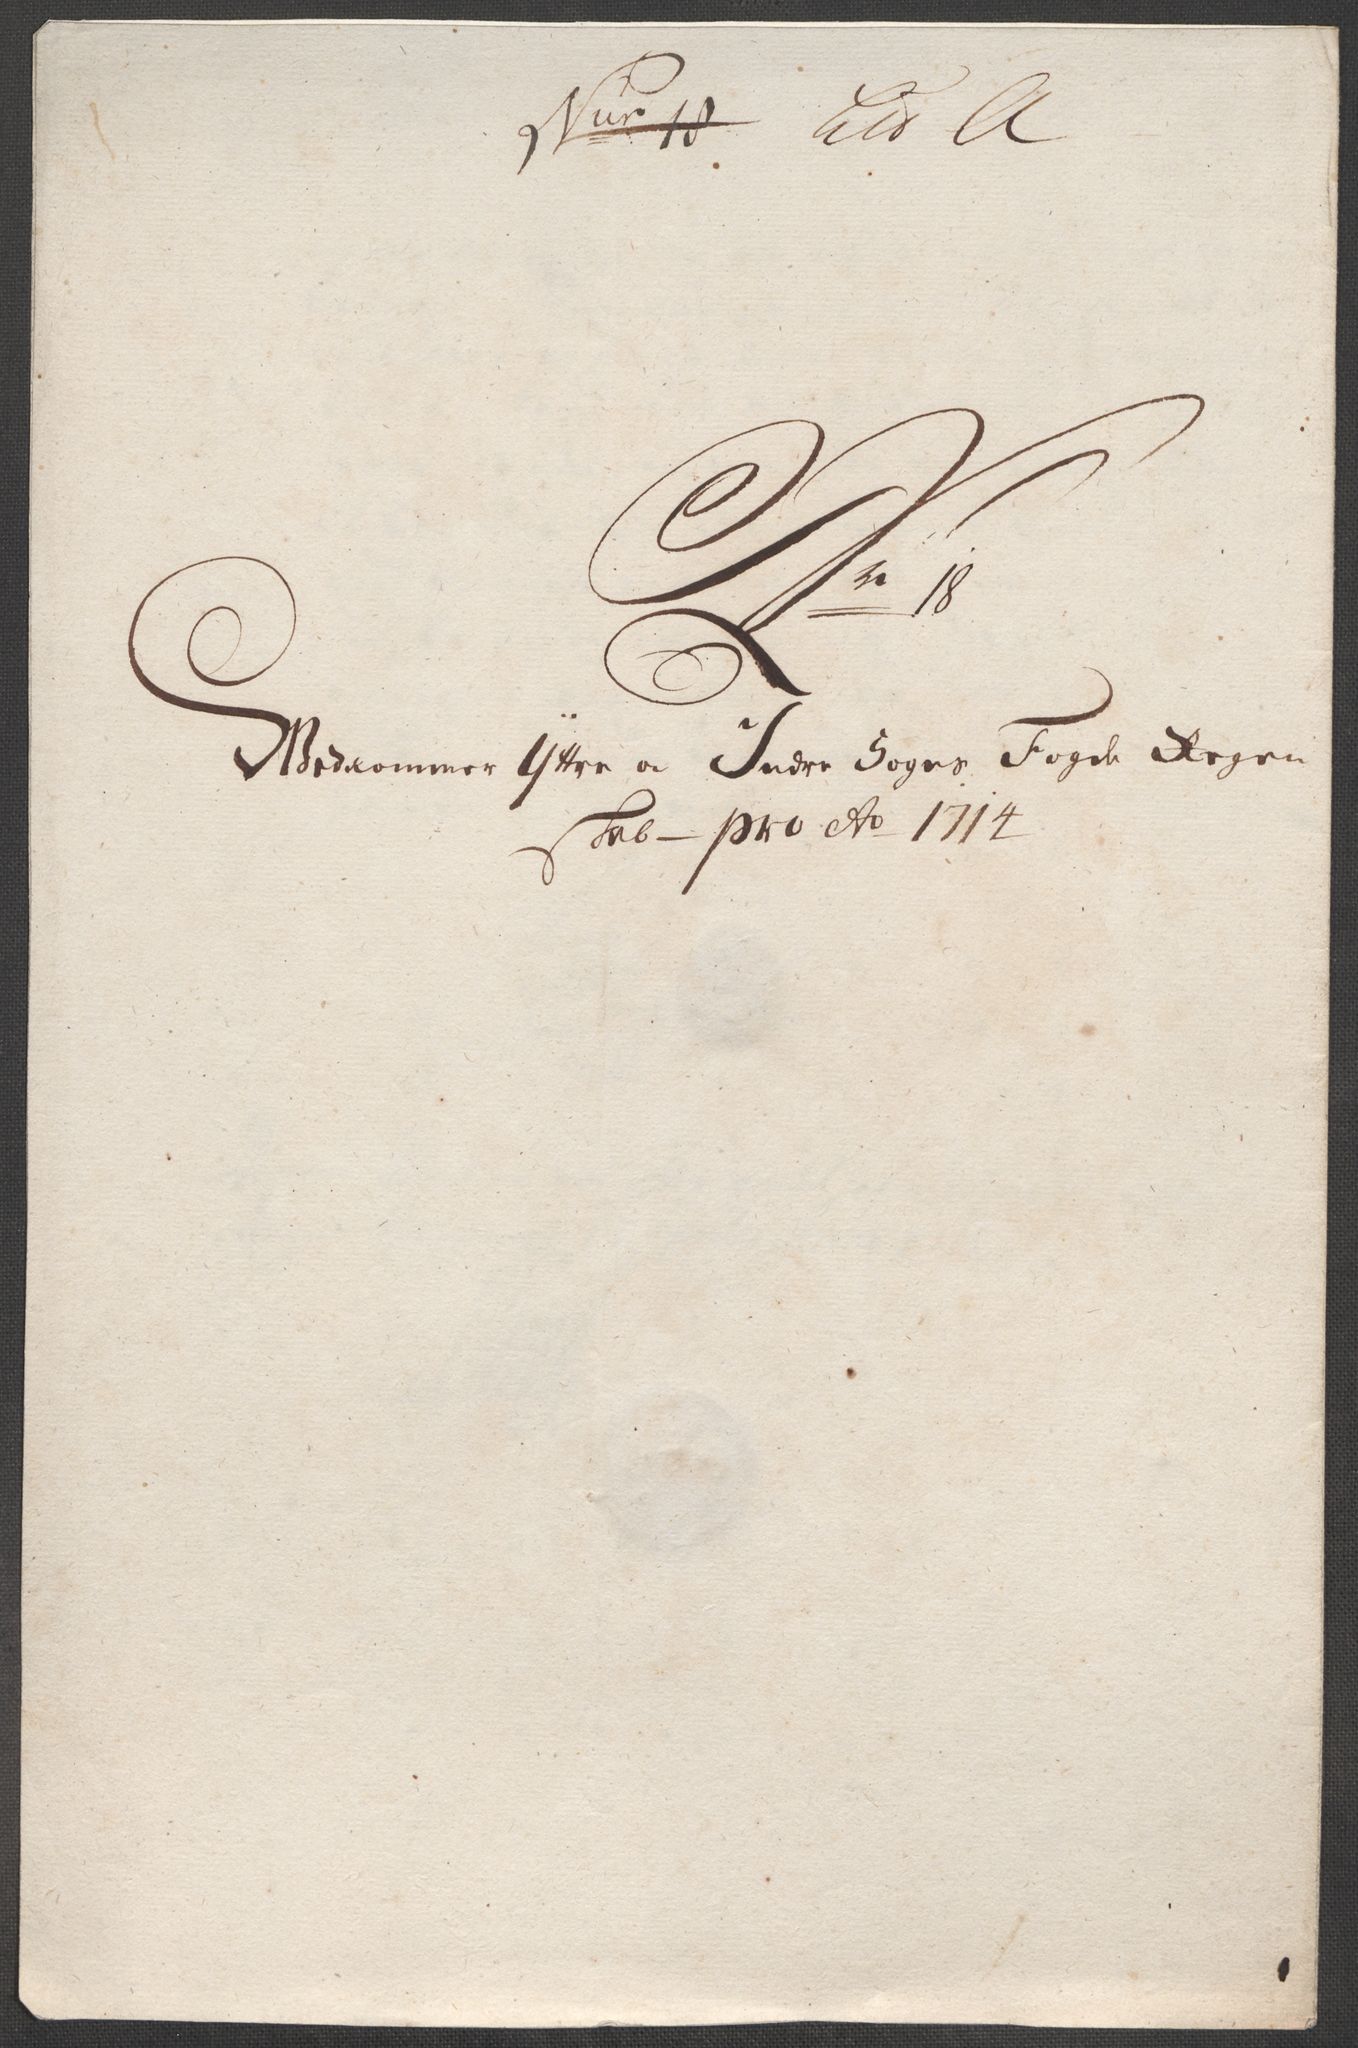 Nür 18 Lit A
Nr 18
Vedkommer Yttre og Indre Sogns Fogde Regen
skab - pro Ao 1714